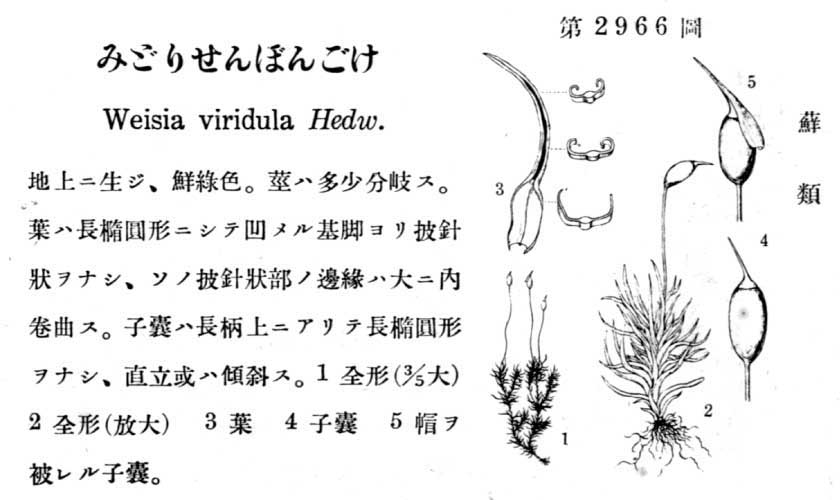 第2966圖
蘚類
みどりせんぼんごけ
Weisia viridula Hedw.
地上ニ生ジ、鮮綠色。莖ハ多少分岐ス。
葉ハ長橢圓形ニシテ凹メル基脚ヨリ披針
狀ヲナシ、ソノ披針狀部ノ邊緣ハ大ニ內
卷曲ス。子囊ハ長柄上ニアリテ長橢圓形
ヲナシ、直立或ハ傾斜ス。1 全形(3/5大)
2 全形(放大) 3 葉 4 子囊 5 帽ヲ
被レル子囊。
3
5
4
1
2